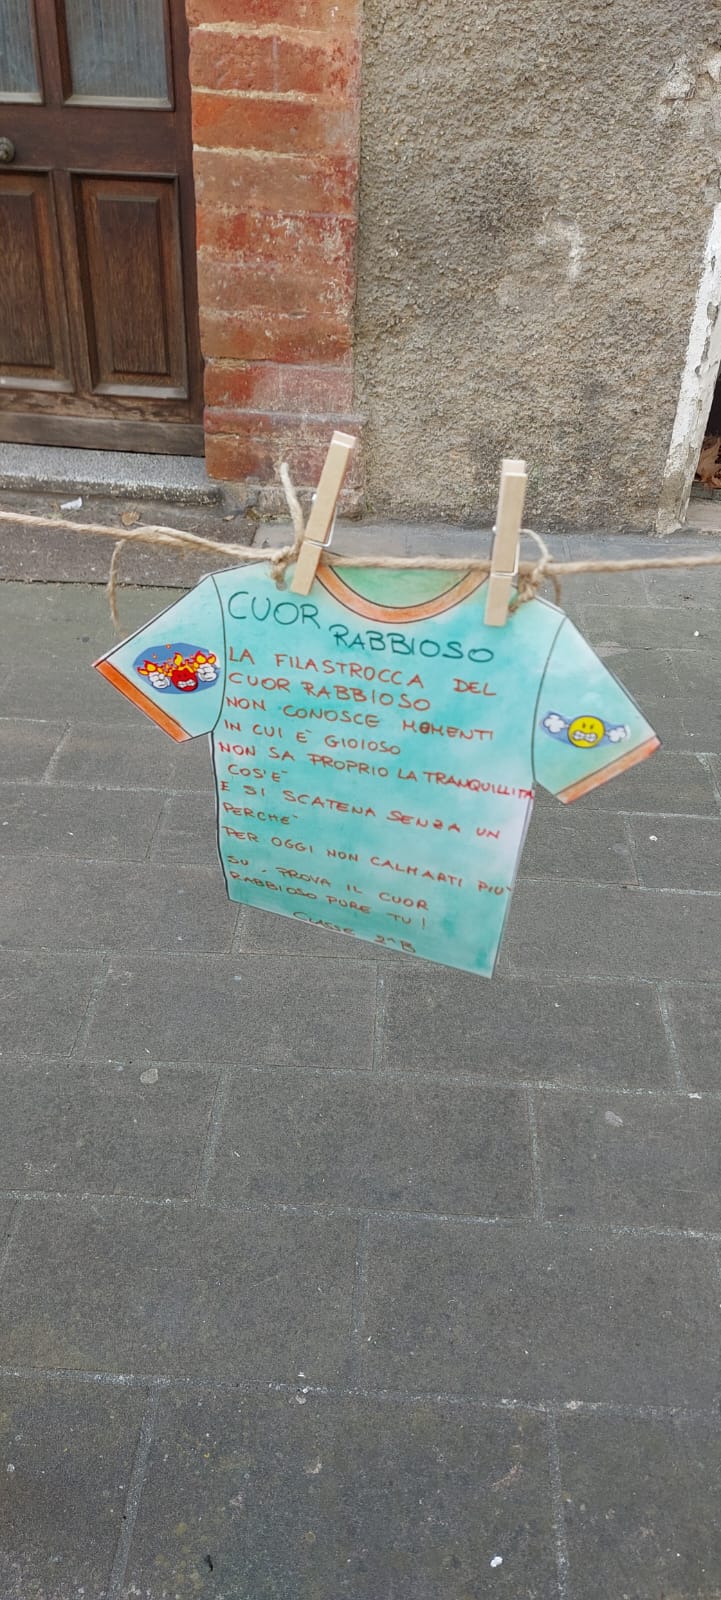 CUOR
RABBIOSO
LA FILASTROCCA DEL
CUOR RABBIOSO
NON CONOSCE MOMENTI
IN CUI È GIOIOSO
NON SA PROPRIO LA TRANQUILLITÀ
COS'È
E SI SCATENA SENZA UN
PERCHÈ
PER OGGI NON CALMARTI PIÙ
SU, PROVA IL CUOR
RABBIOSO PURE TU!
CLASSE 2ªB